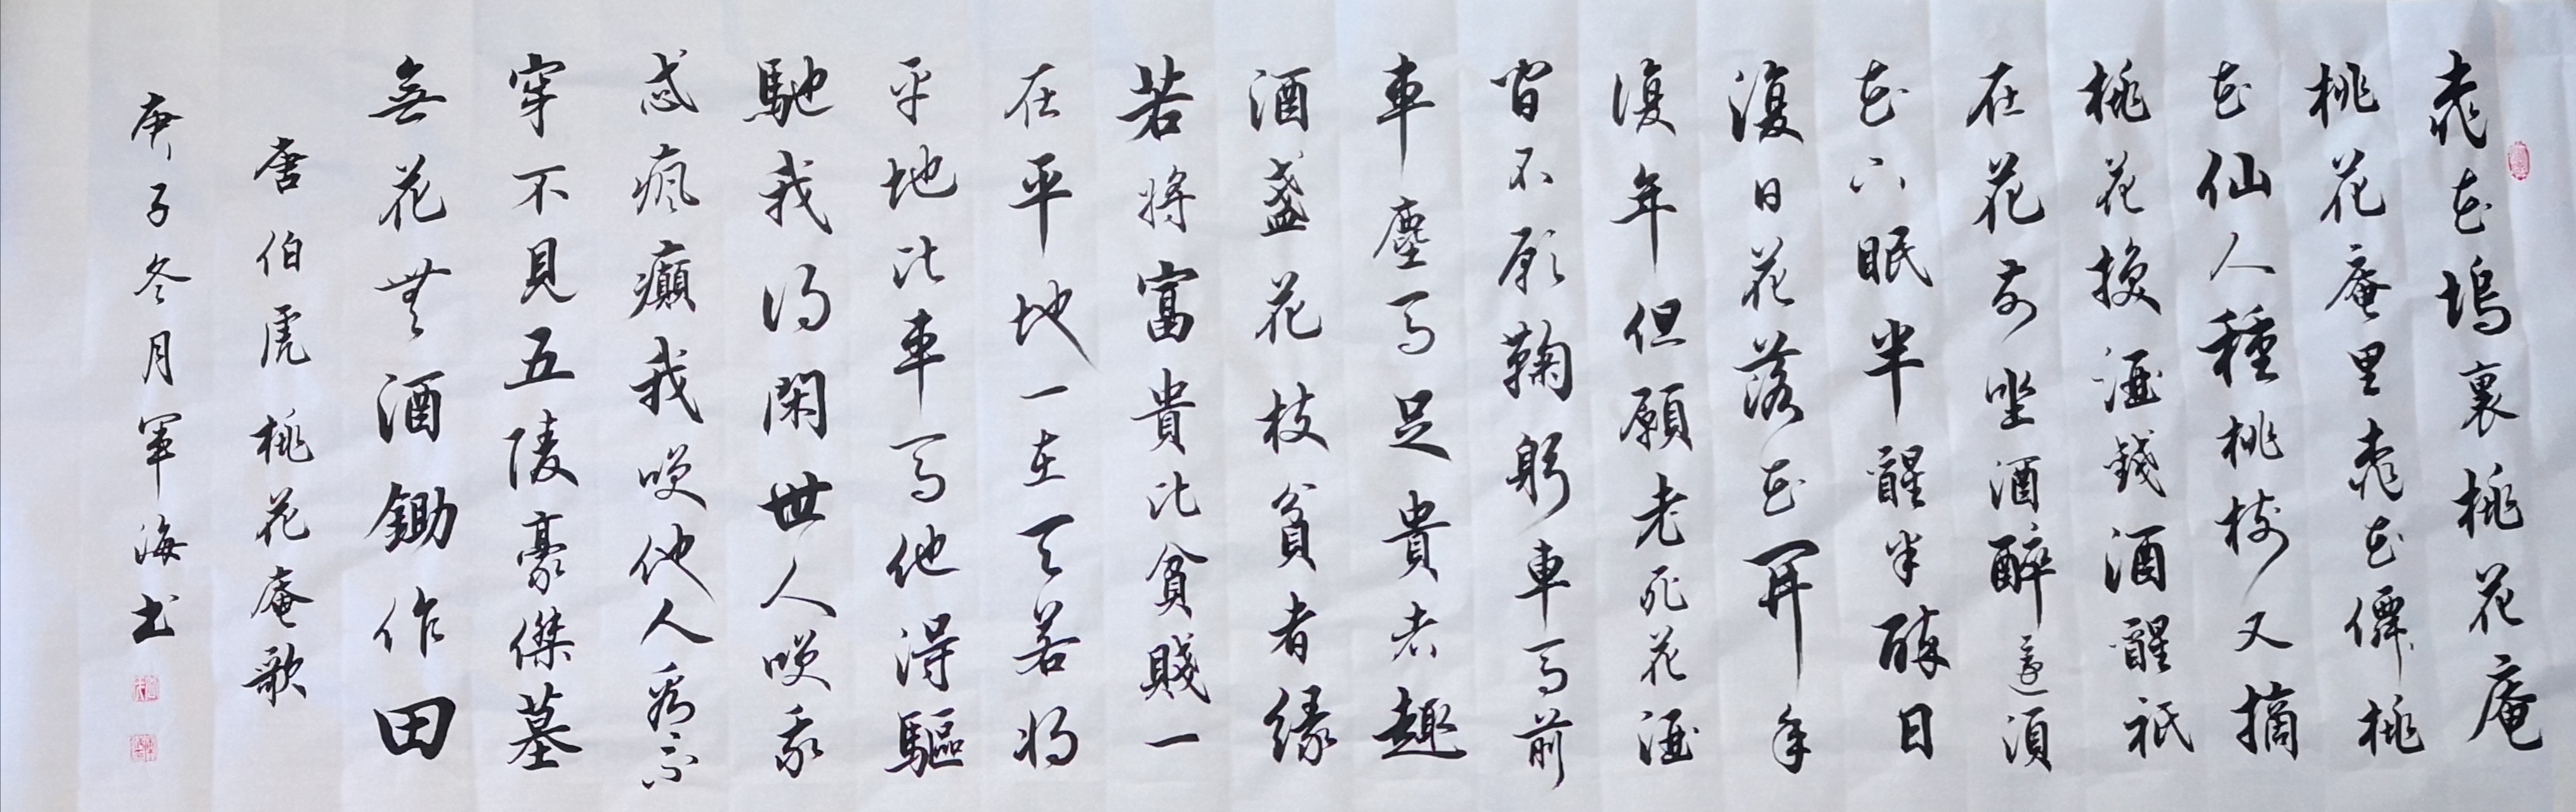 桃花塢裏桃花庵
桃花庵里桃花僊桃
花仙人種桃树又摘
桃花換酒錢酒醒祇
在花前坐酒醉還須
花下眠半醒半醉日
復日花落花開年
復年但願老死花酒
間不願鞠躬車馬前
車塵馬足貴者趣
酒盞花枝貧者緣
若将富貴比貧賤一
在平地一在天若将
平地比車馬他得驅
馳我得閑世人咲我
忒瘋癲我咲他人看不
穿不見五陵豪傑墓
無花無酒鋤作田
唐伯虎桃花庵歌
庚子冬月軍海书